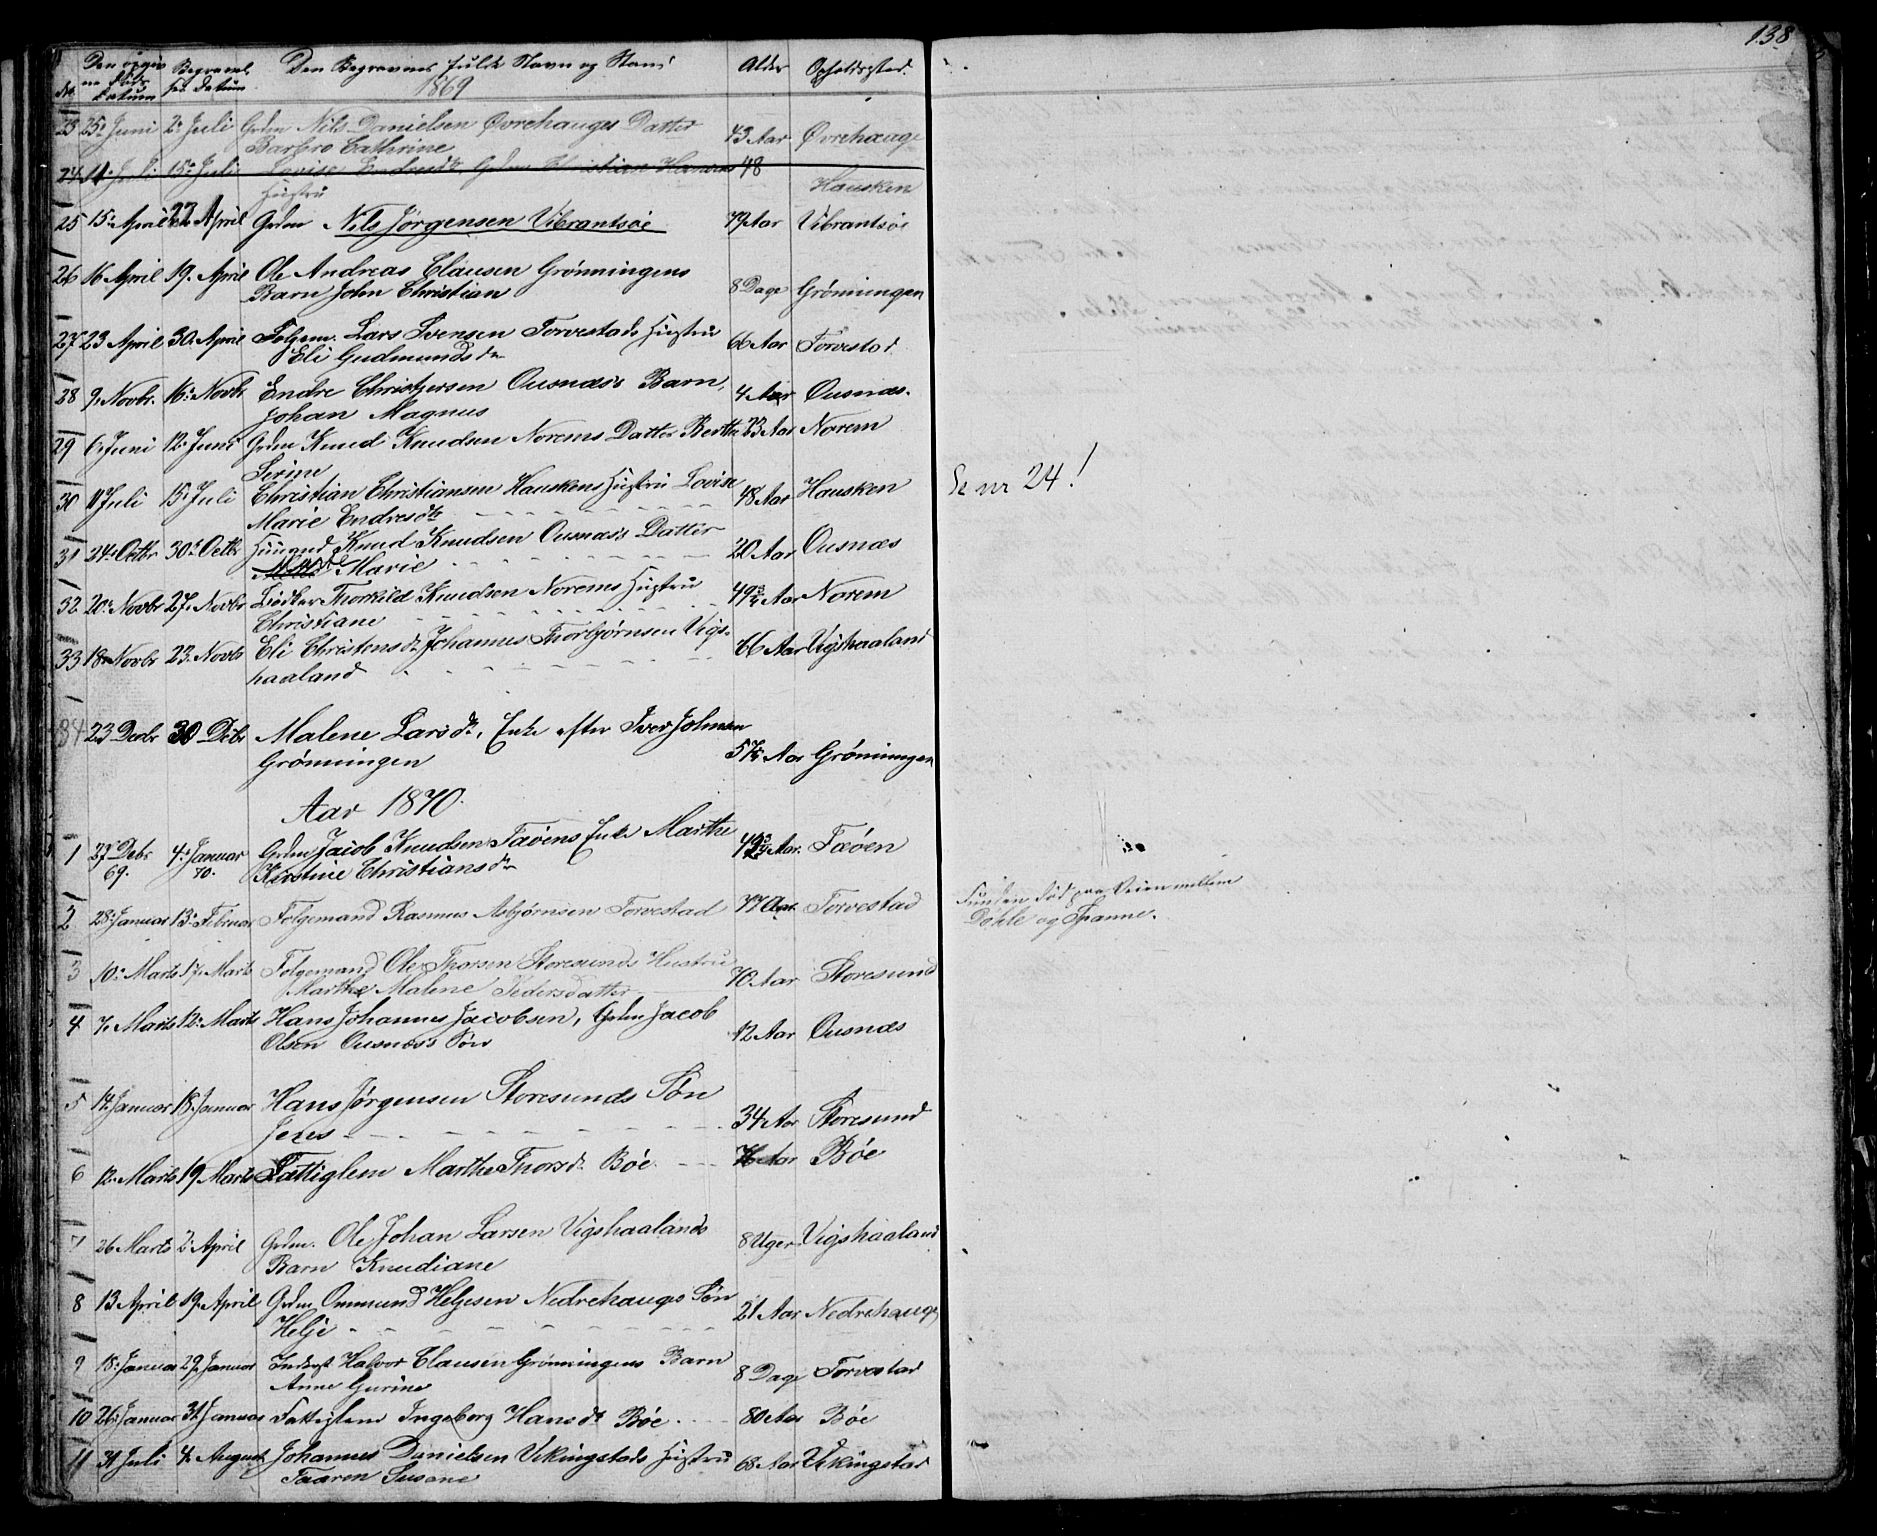 138
No. Den øvrige Døds Datum Begravelses Datum Den Begravnes fulde Navn og Stand Alder Opholdssted.
1869
23 25de Juni 2de Juli Grdm Nils Danielsen Øvrehauges Datter 43 Aar Øvrehauge
Barbro Cathrine
24 11te Juli 15de Juli Lovise Endresdtr Grdm Christian Hauskens 48
Hustru Hausken
25 15de April 22 April Grdm Nils Jørgensen Vibrantsøe 79 Aar Vibrantsøe
26 16 April 19. April Ole Andreas Clausen Grønningens
Barn John Christian 8 Dage Grønningen
27 23 April 30. April Folgem. Lars Svensen Torvestads Hustru 66 Aar Torvestad
Eli Gudmundsdtr
28 9. Novbr. 16. Novbr Endre Christjersen Ousnæs's Barn, 4 Aar Ousnæs.
Johan Magnus
29 6. Juni 12. Juni Grdm Knud Knudsen Norems Datter Berthe 23 Aar Norem
Serine
30 11 Juli 15. Juli Christian Christiansen Hauskens Hustru Lovise 48 Aar Hausken
Marie Endresdtr
Se nr 24!
31 24. Octbr 30te Octbr Huusmand Knud Knudsen Ousnæs's Datter 20 Aar Ousnæs
Marie
32 20. Novbr 27. Novbr Bødker Thorkild Knudsen Norems Hustru 49 3/4 Aar Norem
Christiane
33 18 Novbr 23. Novbr Eli Christensdtr Johannes Thorbjørnsen Vigs- 66 Aar Vigshaaland
haaland
34 23 Decbr 30 Dcbr Malene Larsdtr, Enke efter Iver Johnsen
Grønningen 57 1/4 Aar Grønningen
Aar 1870.
1 27 Debr 69. 4de Januar 70. Grdm Jacob Knudsen Fæøens Enke Marthe 49 Aar. Fæøen
Kirstine Christiansdtr
2 28. Januar 13. Februar Folgemand Rasmus Asbjørnsen Torvestad 77 Aar Torvestad
Funden død paa Veien mellem
Døhle og Spanne.
3 10. Marts 17. Marts Folgemand Ole Thorsen Storesunds Hustru
Marthe Malene Pedersdatter 70 Aar Storesund
4 7. Marts 12. Marts Hans Johannes Jacobsen, Grdm Jacob
Olsen Ousnæs's Søn 12 Aar Ousnæs
5 14. Januar 18. Januar Hans Jørgensen Storesunds Søn
Jens 34 Aar Storesund
6 12. Marts 19 Marts Fattiglem Marthe Thorsdtr Bøe. 76 Aar Bøe
7 26 Marts 2. April Grdm. Ole Johan Larsen Vigshaalands 8 Uger Vigshaaland
Barn Knudiane
8 13 April 19. April Grdm Ommund Helgesen Nedrehauges Søn 21 Aar Nedrehauge
Helje
9 18. Januar 29. Januar Inderst Halvor Clausen Grønningens Barn 8 Dage Torvestad
Anne Gurine
10 26. Januar 31. Januar Fattiglem Ingeborg Hansdtr Bøe. 80 Aar Bøe
11 31 Juli 4. August Johannes Danielsen Vikingstads Hustru 68 Aar Vikingstad
Taaren Susane